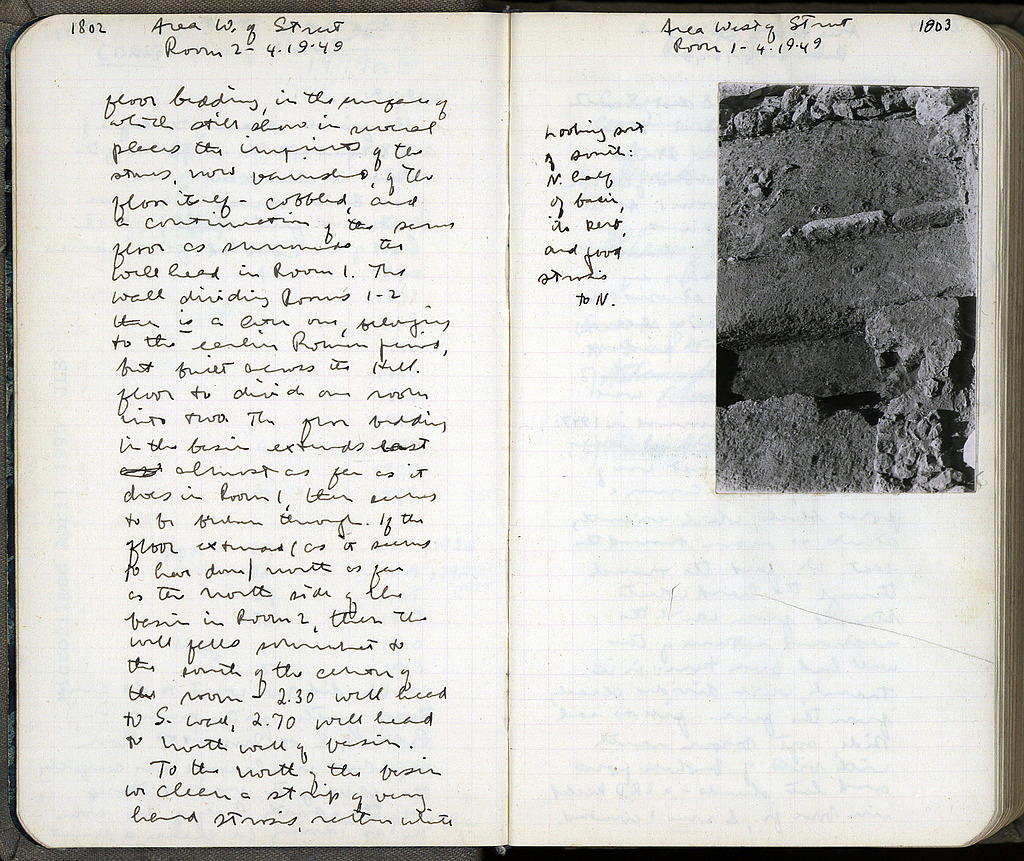 1802 Area W. of Street
Room 2 - 4.19.49
floor bedding, in the surface of
which still show in several
places the imprints of the
stones, now vanished, of the
floor itself - cobbled, and
a continuation of the same
floor as surrounds the
well head in Room 1. The
wall dividing Rooms 1-2
then is a later one, belonging
to the earlier Roman period,
but built across its Hell.
floor to divide one room
into two. The floor bedding
in the basin extends east
almost as far as it
does in Room 1, then seems
to be broken through. If the
floor extended (as it seems
to have done) north as far
as the north side of the
basin in Room 2, then the
well falls somewhat to
the south of the center of
the room - 2.30 well head
to S. wall, 2.70 well head
to north wall of basin.
To the north of the basin
we clean a strip of very
hard strosis, rather white
Area West of Street 1803
Room 1 - 4.19.49
Looking sort
of south.
N. half
of basin,
its kerb,
and good
strosis
to N.